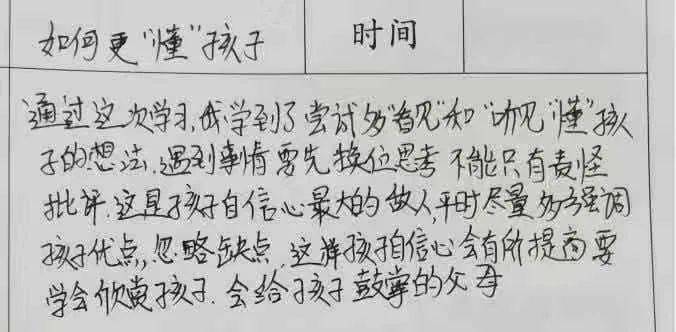 如何更"懂"孩子 时间
通过这次学习,我学到了尝试多"看见"和"听见"懂"孩
子的想法,遇到事情要先换位思考 不能只有责怪
批评.这是孩子自信心最大的做人,平时尽量多强调
孩子优点,忽略缺点,这样孩子自信心会有所提高要
学会欣赏孩子.会给孩子鼓掌的父母